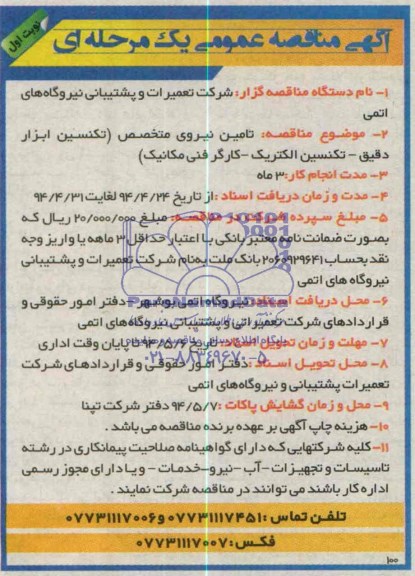 آگهی مناقصه عمومی یک مرحله ای
نوبت اول
۱- نام دستگاه مناقصه گزار: شرکت تعمیرات و پشتیبانی نیروگاه‌های
اتمی
۲- موضوع مناقصه: تامین نیروی متخصص (تکنسین ابزار
دقیق - تکنسین الکتریک - کارگر فنی مکانیک)
۳- مدت انجام کار: ۳ ماه
۴- مدت و زمان دریافت اسناد: از تاریخ ۹۴/۴/۲۴ لغایت ۹۴/۴/۳۱
۵- مبلغ سپرده شرکت در مناقصه: مبلغ ۲۰/۰۰۰/۰۰۰ ریال که
بصورت ضمانت نامه معتبر بانکی با اعتبار حداقل ۳ ماهه یا واریز وجه
نقد بحساب ۲۰۶۰۹۲۹۶۴۱ بانک ملت به نام شرکت تعمیرات و پشتیبانی
نیروگاه های اتمی
۶- محل دریافت اسناد: نیروگاه اتمی بوشهر - دفتر امور حقوقی و
قراردادهای شرکت تعمیراتی و پشتیبانی نیروگاه‌های اتمی
۷- مهلت و زمان تحویل اسناد: تاریخ ۹۴/۵/۶ تا پایان وقت اداری
۸- محل تحویل اسناد: دفتر امور حقوقی و قراردادهای شرکت
تعمیرات پشتیبانی و نیروگاه‌های اتمی
۹- محل و زمان گشایش پاکات: ۹۴/۵/۷ دفتر شرکت تپنا
۱۰- هزینه چاپ آگهی بر عهده برنده مناقصه می باشد.
۱۱- کلیه شرکتهایی که دارای گواهینامه صلاحیت پیمانکاری در رشته
تاسیسات و تجهیزات - آب - نیرو - خدمات - و یا دارای مجوز رسمی
اداره کار باشند می توانند در مناقصه شرکت نمایند.
تلفن تماس: ۰۷۷۳۱۱۱۷۴۵۱ و ۰۷۷۳۱۱۱۷۰۰۶
فکس: ۰۷۷۳۱۱۱۷۰۰۷
۱۰۰
۰۲۱-۸۸۳۴۹۶۷۰-۵